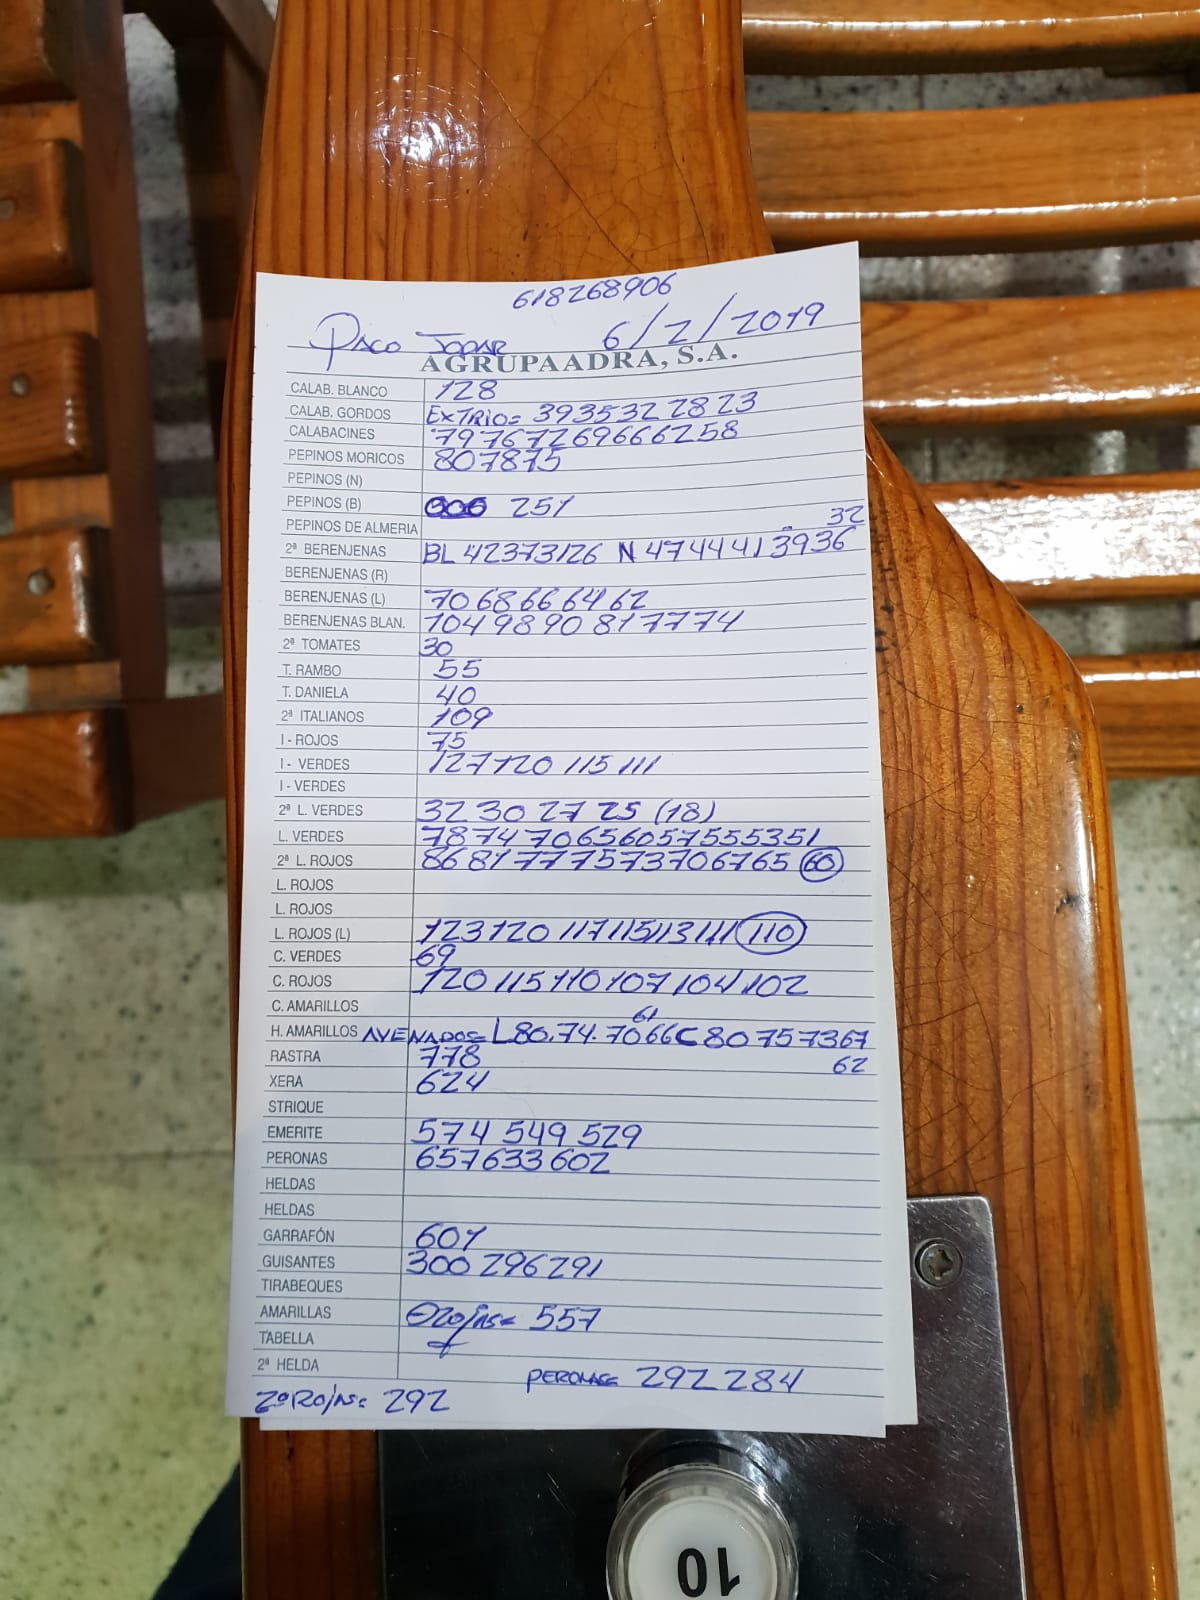 618268906
Paco Jodar 6/2/2019
AGRUPAADRA, S.A.
CALAB. BLANCO 128
CALAB. GORDOS EXTRIO= 3935322823
CALABACINES 79767269666258
PEPINOS MORICOS 807875
PEPINOS (N)
PEPINOS (B) 251
PEPINOS DE ALMERIA 32
2ª BERENJENAS BL 42373126 N 4744413936
BERENJENAS (R)
BERENJENAS (L) 7068666462
BERENJENAS BLAN. 1049890817774
2ª TOMATES 30
T. RAMBO 55
T. DANIELA 40
2ª ITALIANOS 109
I - ROJOS 75
I - VERDES 127120 115 111
I - VERDES
2ª L. VERDES 32 30 27 25 (18)
L. VERDES 787470656057555351
2ª L. ROJOS 8681777573706765 60
L. ROJOS
L. ROJOS
L. ROJOS (L) 123120 117115113111 110
C. VERDES 69
C. ROJOS 120 115 110 107 104 102
C. AMARILLOS 61
H. AMARILLOS AVENADOS= L80.74.7066C80757367
RASTRA 778 62
XERA 624
STRIQUE
EMERITE 574 549 529
PERONAS 657633602
HELDAS
HELDAS
GARRAFÓN 601
GUISANTES 300 296291
TIRABEQUES
AMARILLAS 557
TABELLA
2ª HELDA PERONAS= 292 284
2ª Rojas= 292
10